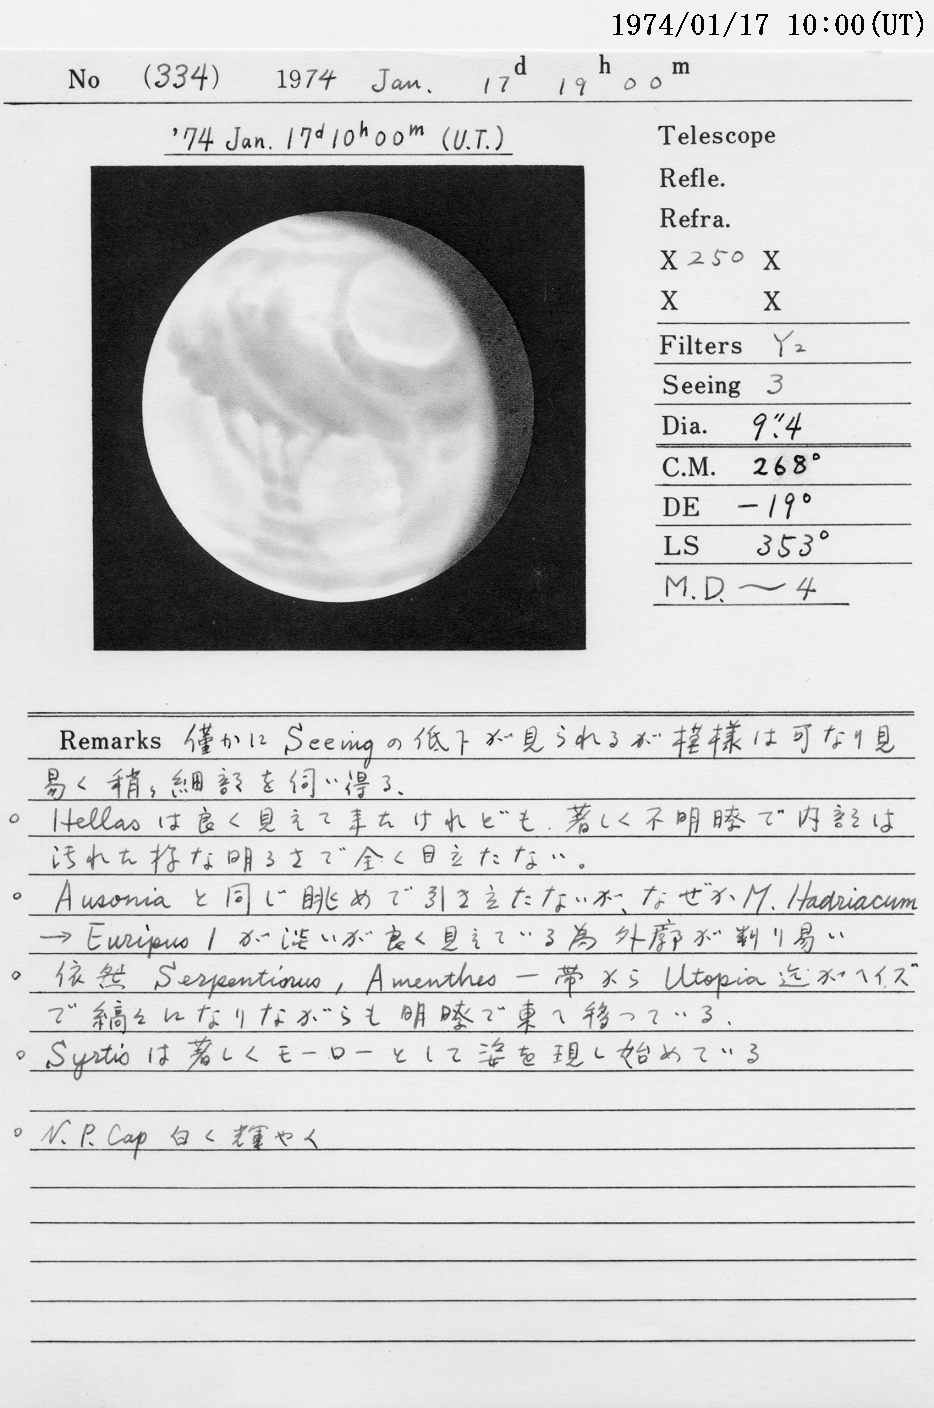 1974/01/17 10:00(UT)
No (334) 1974 Jan. 17d 19h 00m
'74 Jan. 17d 10h 00m (U.T.)
Telescope
Refle.
Refra.
X 250 X
X X
Filters Y2
Seeing 3
Dia. 9".4
C.M. 268°
DE -19°
LS 353°
M.D. ～ 4
Remarks 僅かに Seeing の低下が見られるが模様は可なり見
易く稍々細部を伺い得る.
○ Hellas は良く見えて来たけれども、著しく不明瞭で内部は
汚れた様な明るさで全く目立たない。
○ Ausonia と同じ眺めで引き立たないが、なぜか M. Hadriacum
→ Euripus 1 が淡いが良く見えている為外廓が判り易い
○ 依然 Serpentinus, Amenthes 一帯から Utopia 迄がヘイズ
で縞々になりながらも明瞭で東へ移っている.
○ Syrtis は著しくモーローとして姿を現し始めている
○ N.P.Cap 白く輝やく